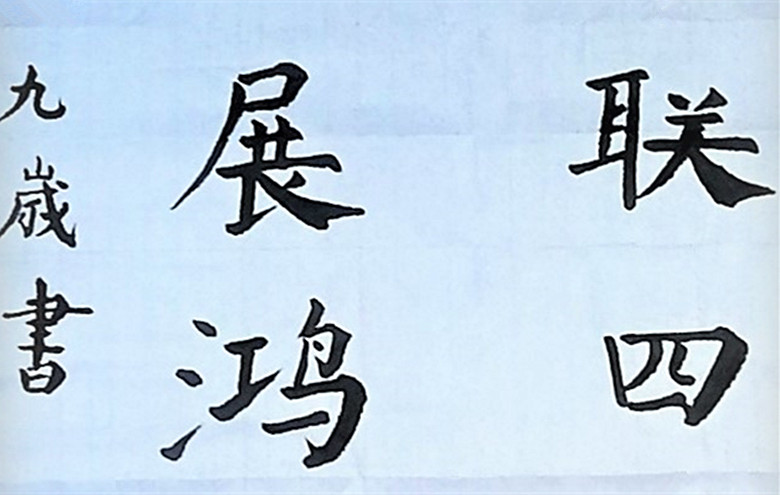 联四
展鸿
九歲書